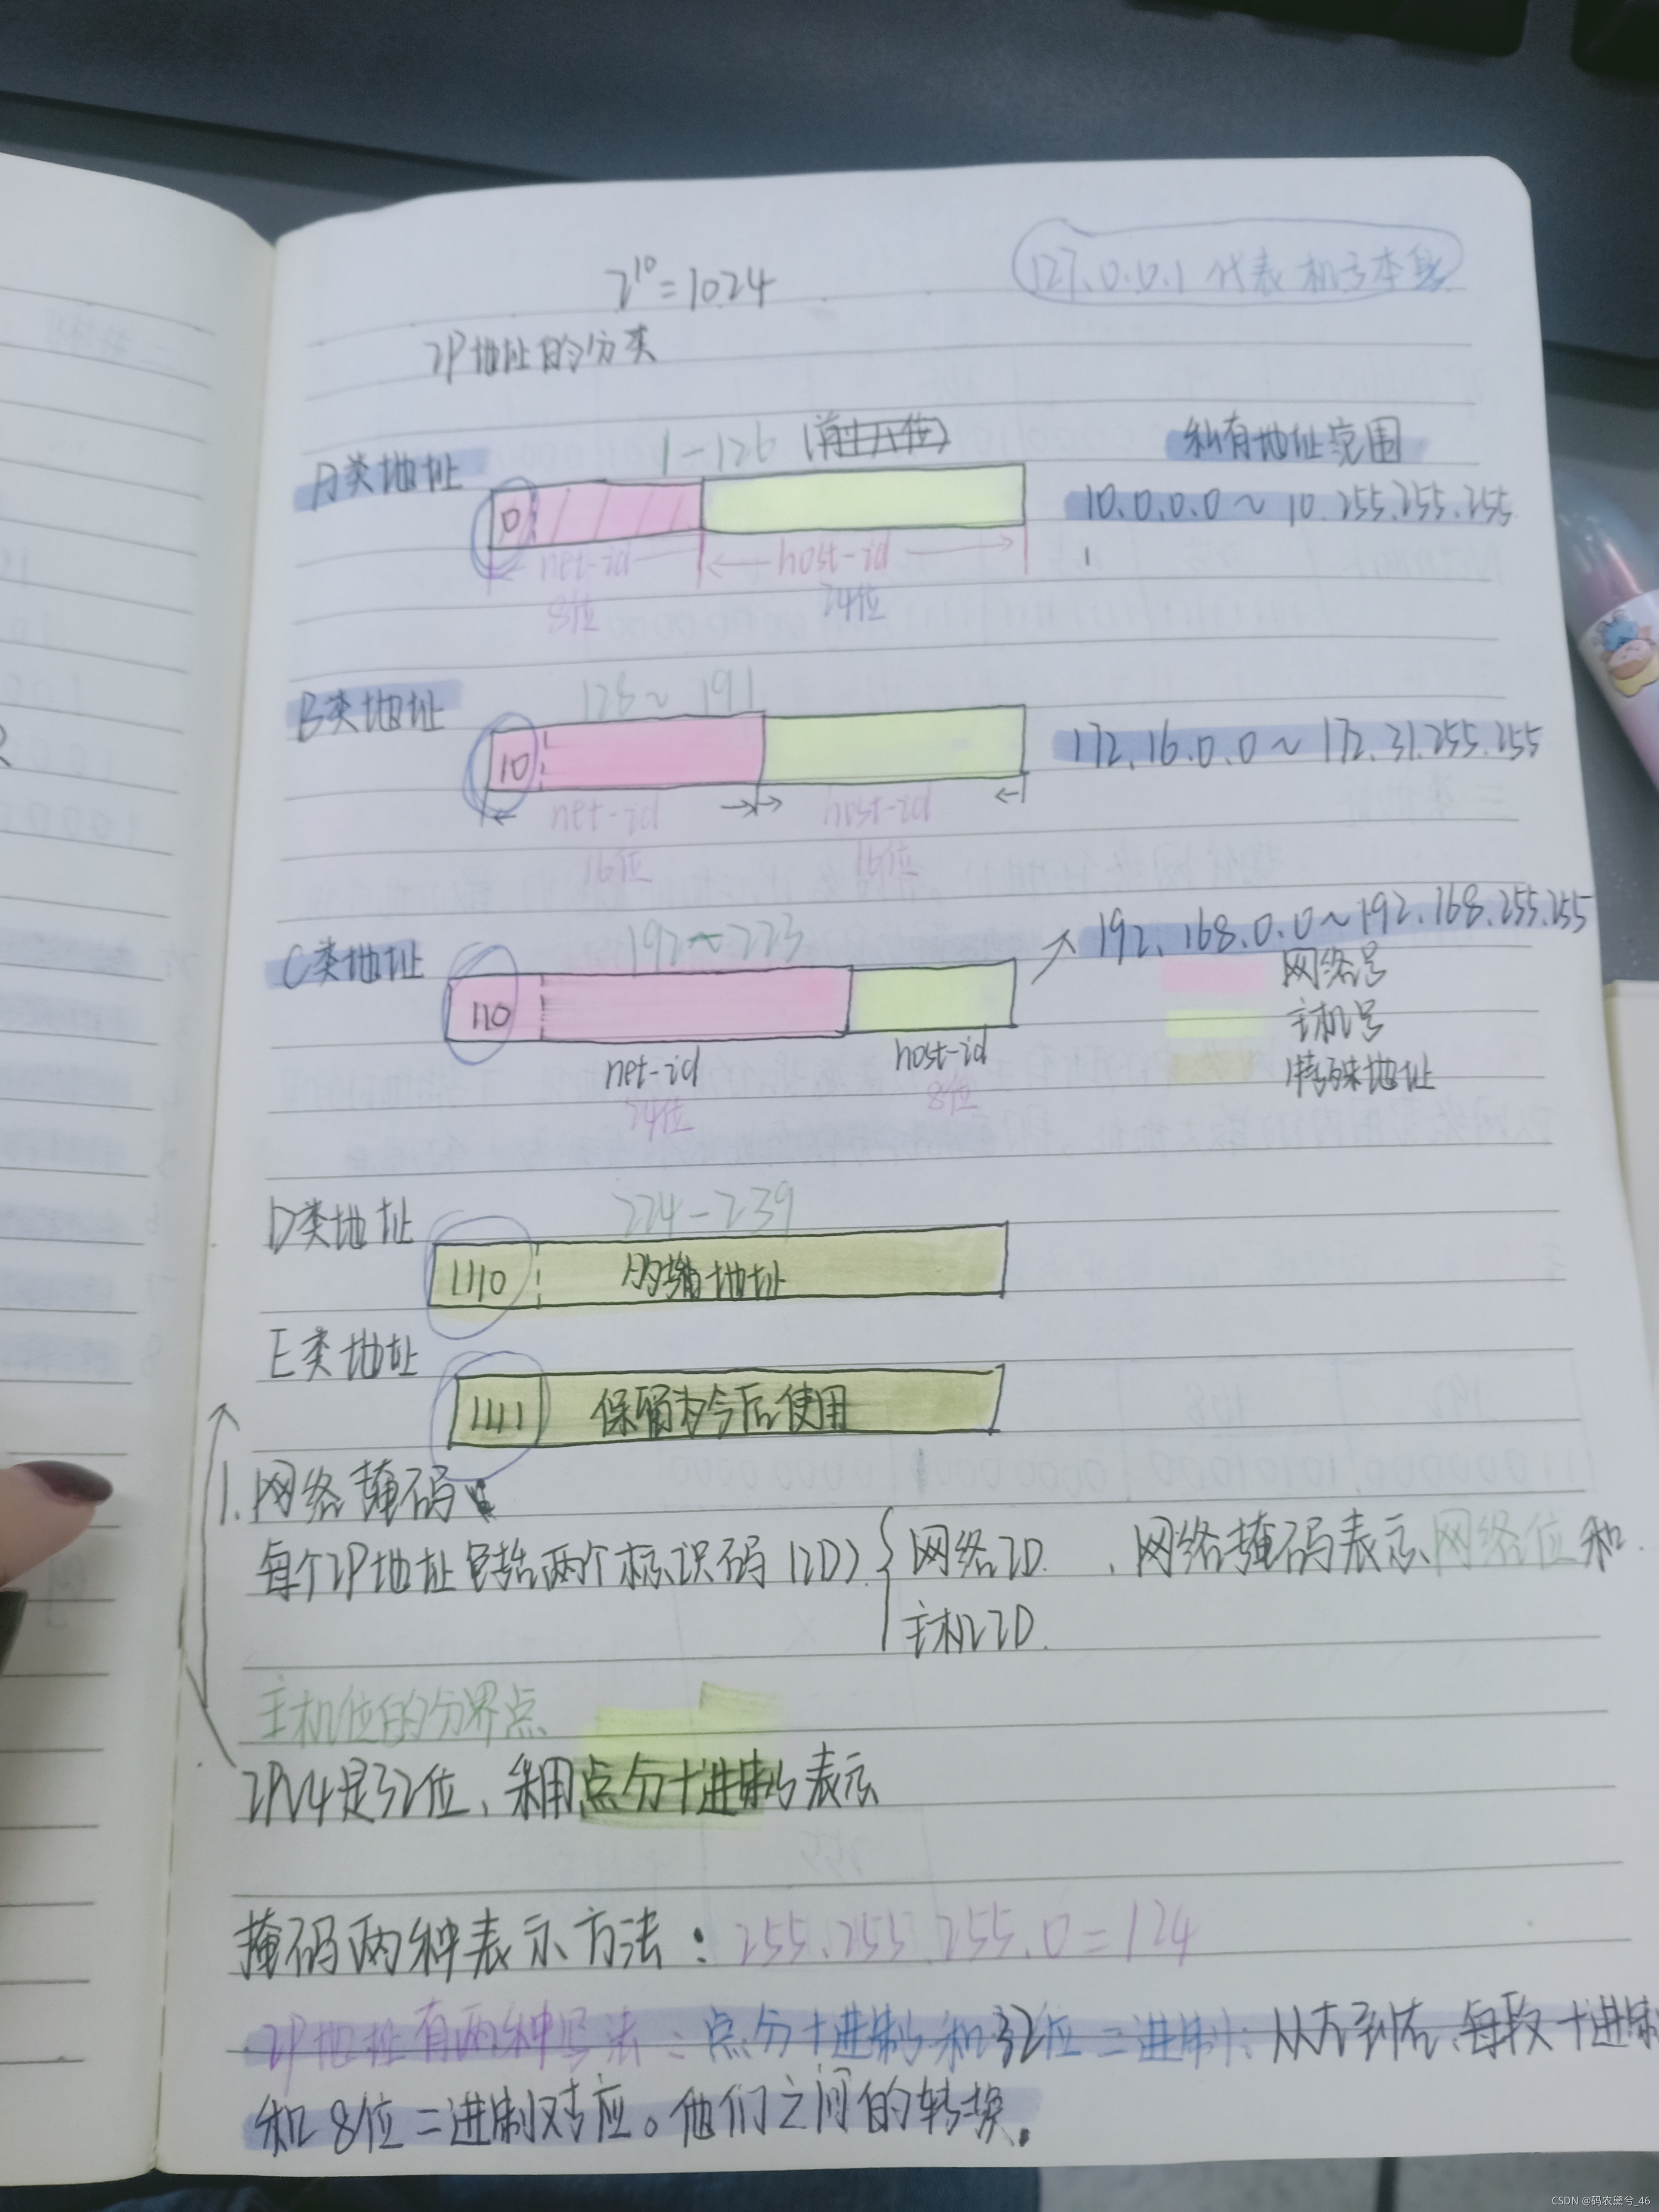 2¹⁰=1024
127.0.0.1 代表
IP地址的分类
A类地址
1-126
私有地址范围
0
10.0.0.0～10.255.255.255
net-id
host-id
8位
24位
B类地址
128～191
10
172.16.0.0～172.31.255.255
net-id
host-id
16位
16位
C类地址
192～223
192.168.0.0～192.168.255.255
110
网络号
主机号
特殊地址
net-id
host-id
24位
8位
D类地址
224-239
1110
地址
E类地址
1111
保留为今后使用
1.网络掩码
每个IP地址包括两个标识码(ID) 网络ID、网络掩码表示网络位和
主机ID.
主机位的分界点
IPV4是32位、采用点分十进制表示
掩码两种表示方法：255.255.255.0=124
IP地址有两种写法：点分十进制和32位二进制；从左到右、每段十进制
和8位二进制对应。他们之间的转换.
CSDN @码农黛兮_46